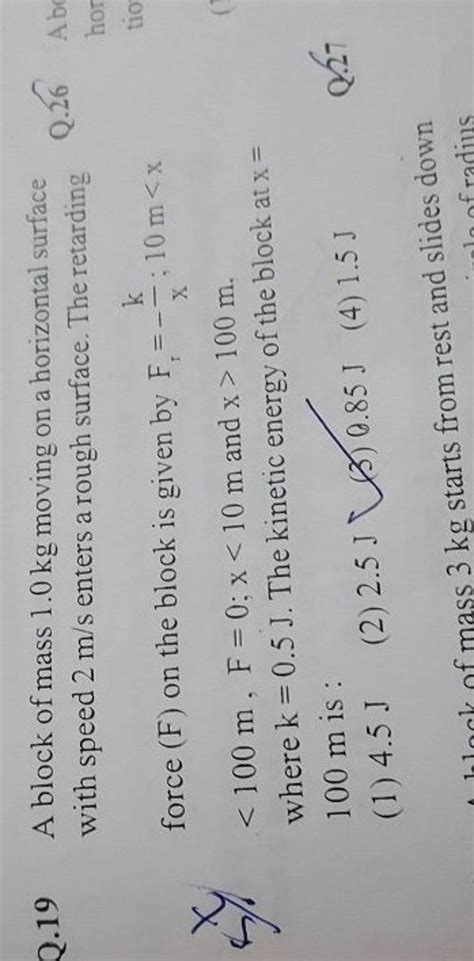 Q.19 A block of mass 1.0 kg moving on a horizontal surface
with speed 2 m/s enters a rough surface. The retarding
force (F) on the block is given by F_r = - k/x ; 10 m < x
< 100 m , F = 0; x < 10 m and x > 100 m.
where k = 0.5 J. The kinetic energy of the block at x =
100 m is :
(1) 4.5 J (2) 2.5 J (3) 0.85 J (4) 1.5 J
of mass 3 kg starts from rest and slides down
of radius
Q.26
Q.27